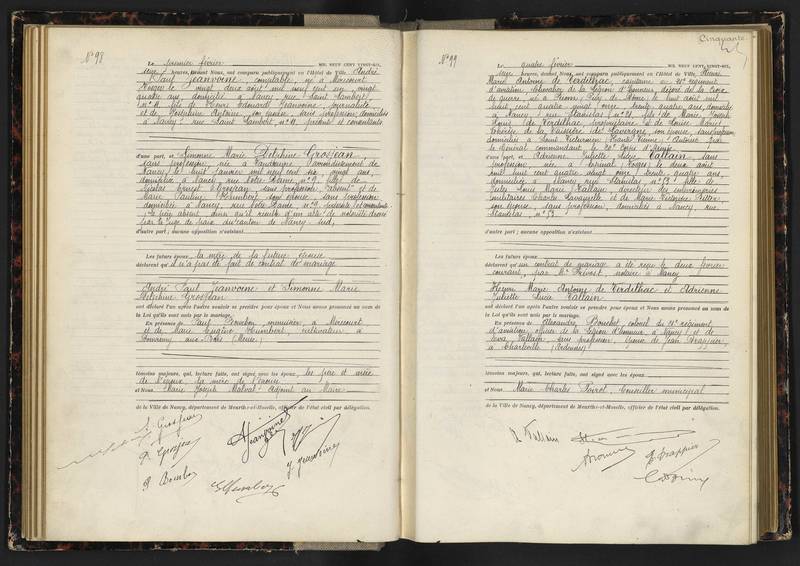 N° 98
Le premier février MIL NEUF CENT VINGT-SIX,
heures, devant Nous, ont comparu publiquement en l'Hôtel de Ville, André
Paul Jeanvoine, comptable, né à Mirecourt
Vosges le vingt deux août mil neuf cent un, vingt
quatre ans, domicilié à Nancy, rue Saint Lambert,
n° 11, fils de Jeanvoine, journaliste
et de Joséphine Antoine, son épouse, sans profession, domiciliés
à Nancy, rue Saint Lambert, n° 11, présents et consentants
d'une part, et Simonne Marie Delphine Grosjean,
sans profession, née à Vandoeuvre (arrondissement de
Nancy) le huit janvier mil neuf cent six, vingt ans,
domiciliée à Nancy, rue Notre Dame, n° 9, fille de
Nicolas Ernest Grosjean, sans profession, absent et de
Marie Pauline Humbert, son épouse, sans profession
domiciliée à Nancy, rue Notre Dame, n° 9, présente et consentante
le père absent, ainsi qu'il résulte d'un acte de notoriété dressé
par le juge de paix du canton de Nancy sud,
d'autre part; aucune opposition n'existant
Les futurs époux, la mère de la future épouse
déclarent qu'il n'a pas été fait de contrat de mariage
André Paul Jeanvoine et Simonne Marie
Delphine Grosjean
ont déclaré l'un après l'autre vouloir se prendre pour époux et Nous avons prononcé au nom de
la Loi qu'ils sont unis par le mariage.
En présence de Paul Bourbon, menuisier, à Mirecourt
et de Marie Eugène Humbert, cultivateur à
Dombremy aux Bois (Meuse)
témoins majeurs, qui, lecture faite, ont signé avec les époux, les père et mère
de l'époux, la mère de l'épouse
et Nous, Marie Joseph Malval Adjoint au Maire
de la Ville de Nancy, département de Meurthe-et-Moselle, officier de l'état civil par délégation.
S. Grosjean
P. Grosjean
P. Bourbon
Jeanvoine
J. Jeanvoine
Cinquante
N° 99
Le quatre février MIL NEUF CENT VINGT-SIX,
heures, devant Nous, ont comparu publiquement en l'Hôtel de Ville, Henri
Marie Antoine de Verdilhac, capitaine au 21e régiment
d'aviation, chevalier de la Légion d'honneur, décoré de la Croix
de guerre, né à Riom (Puy de Dôme) le huit août mil
huit cent quatre vingt onze, trente quatre ans, domicilié
à Nancy, rue Stanislas, n° 21, fils de Marie Joseph
Louis de Verdilhac, propriétaire et de Louise Marie
Thérèse de la Vaissière de Lavergne, son épouse, sans profession,
domiciliés à Saint Victurnien (Haute Vienne). Autorisé par
le Général commandant le 20e Corps d'Armée
d'une part, et Adrienne Juliette Lucie Vallain, sans
profession, née à Épinal (Vosges) le deux août
mil huit cent quatre vingt onze, trente quatre ans,
domiciliée à Nancy, rue Stanislas, n° 53, fille de
Jules Louis Marie Vallain, directeur des
militaires Charles Lavayette et de Marie Victorine Petter,
son épouse, sans profession, domiciliés à Nancy, rue
Stanislas, n° 53
d'autre part; aucune opposition n'existant
Les futurs époux
déclarent qu'un contrat de mariage a été reçu le deux février
courant, par Me Prévost, notaire à Nancy
Henri Marie Antoine de Verdilhac et Adrienne
Juliette Lucie Vallain
ont déclaré l'un après l'autre vouloir se prendre pour époux et Nous avons prononcé au nom de
la Loi qu'ils sont unis par le mariage.
En présence de Alexandre Bouchet, colonel du 21e régiment
d'aviation, officier de la Légion d'honneur, à Nancy et de
Vallain, sans profession, veuve de Jean Frappier,
à Charleville (Ardennes)
témoins majeurs, qui, lecture faite, ont signé avec les époux
et Nous, Marie Charles Poirot, Conseiller municipal
de la Ville de Nancy, département de Meurthe-et-Moselle, officier de l'état civil par délégation.
A Vallain
Frappier